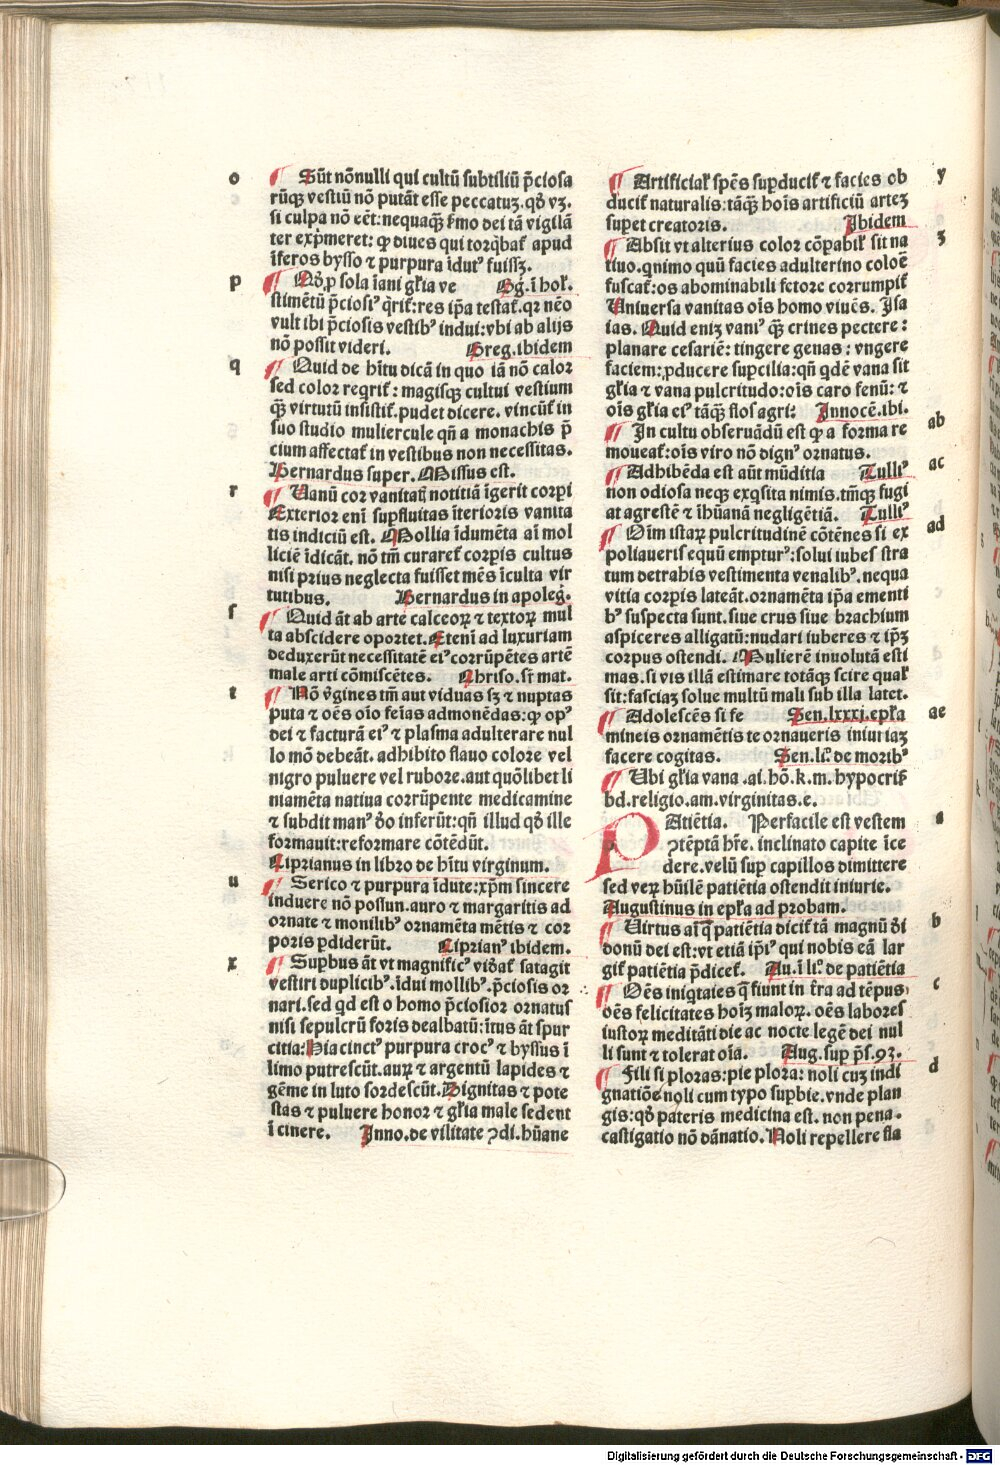 o
Sūt nōnulli qui cultū subtiliū p̄ciosa
rūqꝫ vestiū nō putāt esse peccatuꝫ. qđ vꝫ.
si culpa nō eēt: nequaqꝫ ẜmo dei tā vigilā
ter exp̄meret: ꝙ diues qui torq̄bat᷑ apud
īferos bysso ⁊ purpura īdutꝰ fuissꝫ.
p
Nō ꝓ sola īani gl̄ia ve Gḡ. ī hol᷑.
stimētū p̄ciosiꝰ q̄rit᷑: res ip̄a testat᷑. qꝛ nēo
vult ibi p̄ciosis vestibꝰ indui: vbi ab alijs
nō possit videri. Greg. ibidem
q
Quid de hītu dicā in quo iā nō calor
sed color reqrit᷑: magisqꝫ cultui vestium
qꝫ virtutū insistit᷑. pudet dicere. vincūt᷑ in
suo studio muliercule qn̄ a monachis p̄
cium affectat᷑ in vestibus non necessitas.
Bernardus super. Missus est.
r
Uanū cor vanitatꝭ notitiā īgerit corpi
Exterior eni suꝑfluitas īterioris vanita
tis indiciū est. Mollia īdumēta ai mol
liciē īdicāt. nō tm̄ curaret᷑ corꝑis cultus
nisi prius neglecta fuisset mēs īculta vir
tutibus. Bernardus in apoleḡ.
s
Quid āt ab arte calceoꝝ ⁊ textoꝝ mul
ta abscidere oportet. Eteni ad luxuriam
deduxerūt necessitatē eiꝰ corrūpētes artē
male arti cōmiscētes. Chriso. sr̄ mat.
t
Nō v̄gines tm̄ aut viduas sꝫ ⁊ nuptas
puta ⁊ oēs oīo feīas admonēdas: ꝙ opꝰ
dei ⁊ facturā eiꝰ ⁊ plasma adulterare nul
lo mō debeāt. adhibito flauo colore vel
nigro puluere vel rubore. aut quōlibet li
niamēta natiua corrūpente medicamine
⁊ subdit manꝰ đo inferūt: qn̄ illud qđ ille
formauit: reformare cōtēdūt.
Ciprianus in libro de hītu virginum.
u
Serico ⁊ purpura īdute: xp̄m sincere
induere nō possun. auro ⁊ margaritis ad
ornate ⁊ monilibꝰ ornamēta mētis ⁊ cor
poris ꝑdiderūt. Ciprianꝰ ibidem.
x
Suꝑbus āt vt magnificꝰ viđat᷑ satagit
vestiri duplicibꝰ. īdui mollibꝰ. p̄ciosis or
nari. sed qd est o homo p̄ciosior ornatus
nisi sepulcrū foris dealbatū: ītus āt spur
citia: Hiacinctꝰ purpura crocꝰ ⁊ byssus ī
limo putrescūt. auꝝ ⁊ argentū lapides ⁊
gēme in luto sordescūt. Dignitas ⁊ pote
stas ⁊ puluere honor ⁊ gl̄ia male sedent
ī cinere. Inno. de vilitate ꝯdi. hūane
y
Artificial᷑ sp̄es suꝑducit᷑ ⁊ facies ob
ducit᷑ naturalis: tāqꝫ hoīs artificiū arteꝫ
suꝑet creatoris. Ibidem
ꝫ
Absit vt alterius color cōpabil᷑ sit na
tiuo. qnimo quū facies adulterino coloē
fuscat᷑: os abominabili fetore corrumpit᷑
Uniuersa vanitas oīs homo viuēs. Isa
ias. Quid eniꝫ vaniꝰ qꝫ crines pectere:
planare cesariē: tingere genas: vngere
faciem: ꝓducere suꝑcilia: qn̄ qdē vana sit
gl̄ia ⁊ vana pulcritudo: oīs caro fenū: ⁊
oīs gl̄ia eiꝰ tāqꝫ flos agri: Innocē. ibi.
ab
In cultu obseruādū est ꝙ a forma re
moueat᷑: oīs viro nō dignꝰ ornatus.
ac
Adhibēda est aūt mūditia Tulliꝰ
non odiosa neqꝫ exqsita nimis. tm̄qꝫ fugi
at agrestē ⁊ īhūanā negligētiā. Tulliꝰ
ad
Oīm istaꝝ pulcritudinē cōtēnes si ex
poliaueris equū empturꝰ: solui iubes stra
tum detrahis vestimenta venalibꝰ. nequa
vitia corꝑis lateāt. ornamēta ip̄a ementi
bꝰ suspecta sunt. siue crus siue brachium
aspiceres alligatū: nudari iuberes ⁊ ip̄ꝫ
corpus ostendi. Mulierē inuolutā esti
mas. si vis illā estimare totāqꝫ scire qual᷑
sit: fasciaꝫ solue multū mali sub illa latet.
ae
Adolescēs si fe Sen. lxxxj. epl̄a
mineis ornamētis te ornaueris iniuriaꝫ
facere cogitas. Sen. liº. de moribꝰ
Ubi gl̄ia vana .ai. hō. k. m. hypocris᷑
bd. religio. am. virginitas. e.
a
PAtiētia. Perfacile est vestem
ꝯtēptā hr̄e. inclinato capite īce
dere. velū suꝑ capillos dimittere
sed veꝝ hūilē patiētia ostendit iniurie.
Augustinus in epl̄a ad probam.
b
Uirtus aī q̄ patiētia dicit᷑ tā magnū đi
donū dei est: vt etiā ip̄iꝰ qui nobis eā lar
git᷑ patiētia p̄dicet᷑. Au. ī liº. de patiētia
c
Oēs iniqtates q̄ fiunt in t̄ra ad tēpus
oēs felicitates hoīꝫ maloꝝ. oēs labores
iustoꝝ meditāti die ac nocte legē dei nul
li sunt ⁊ tolerat oīa. Aug. suꝑ ps̄. 93.
d
Fili si ploras: pie plora: noli cuꝫ indi
gnatiōe noli cum typo suꝑbie. vnde plan
gis: qđ pateris medicina est. non pena.
castigatio nō dānatio. Noli repellere fla
Digitalisierung gefördert durch die Deutsche Forschungsgemeinschaft - DFG